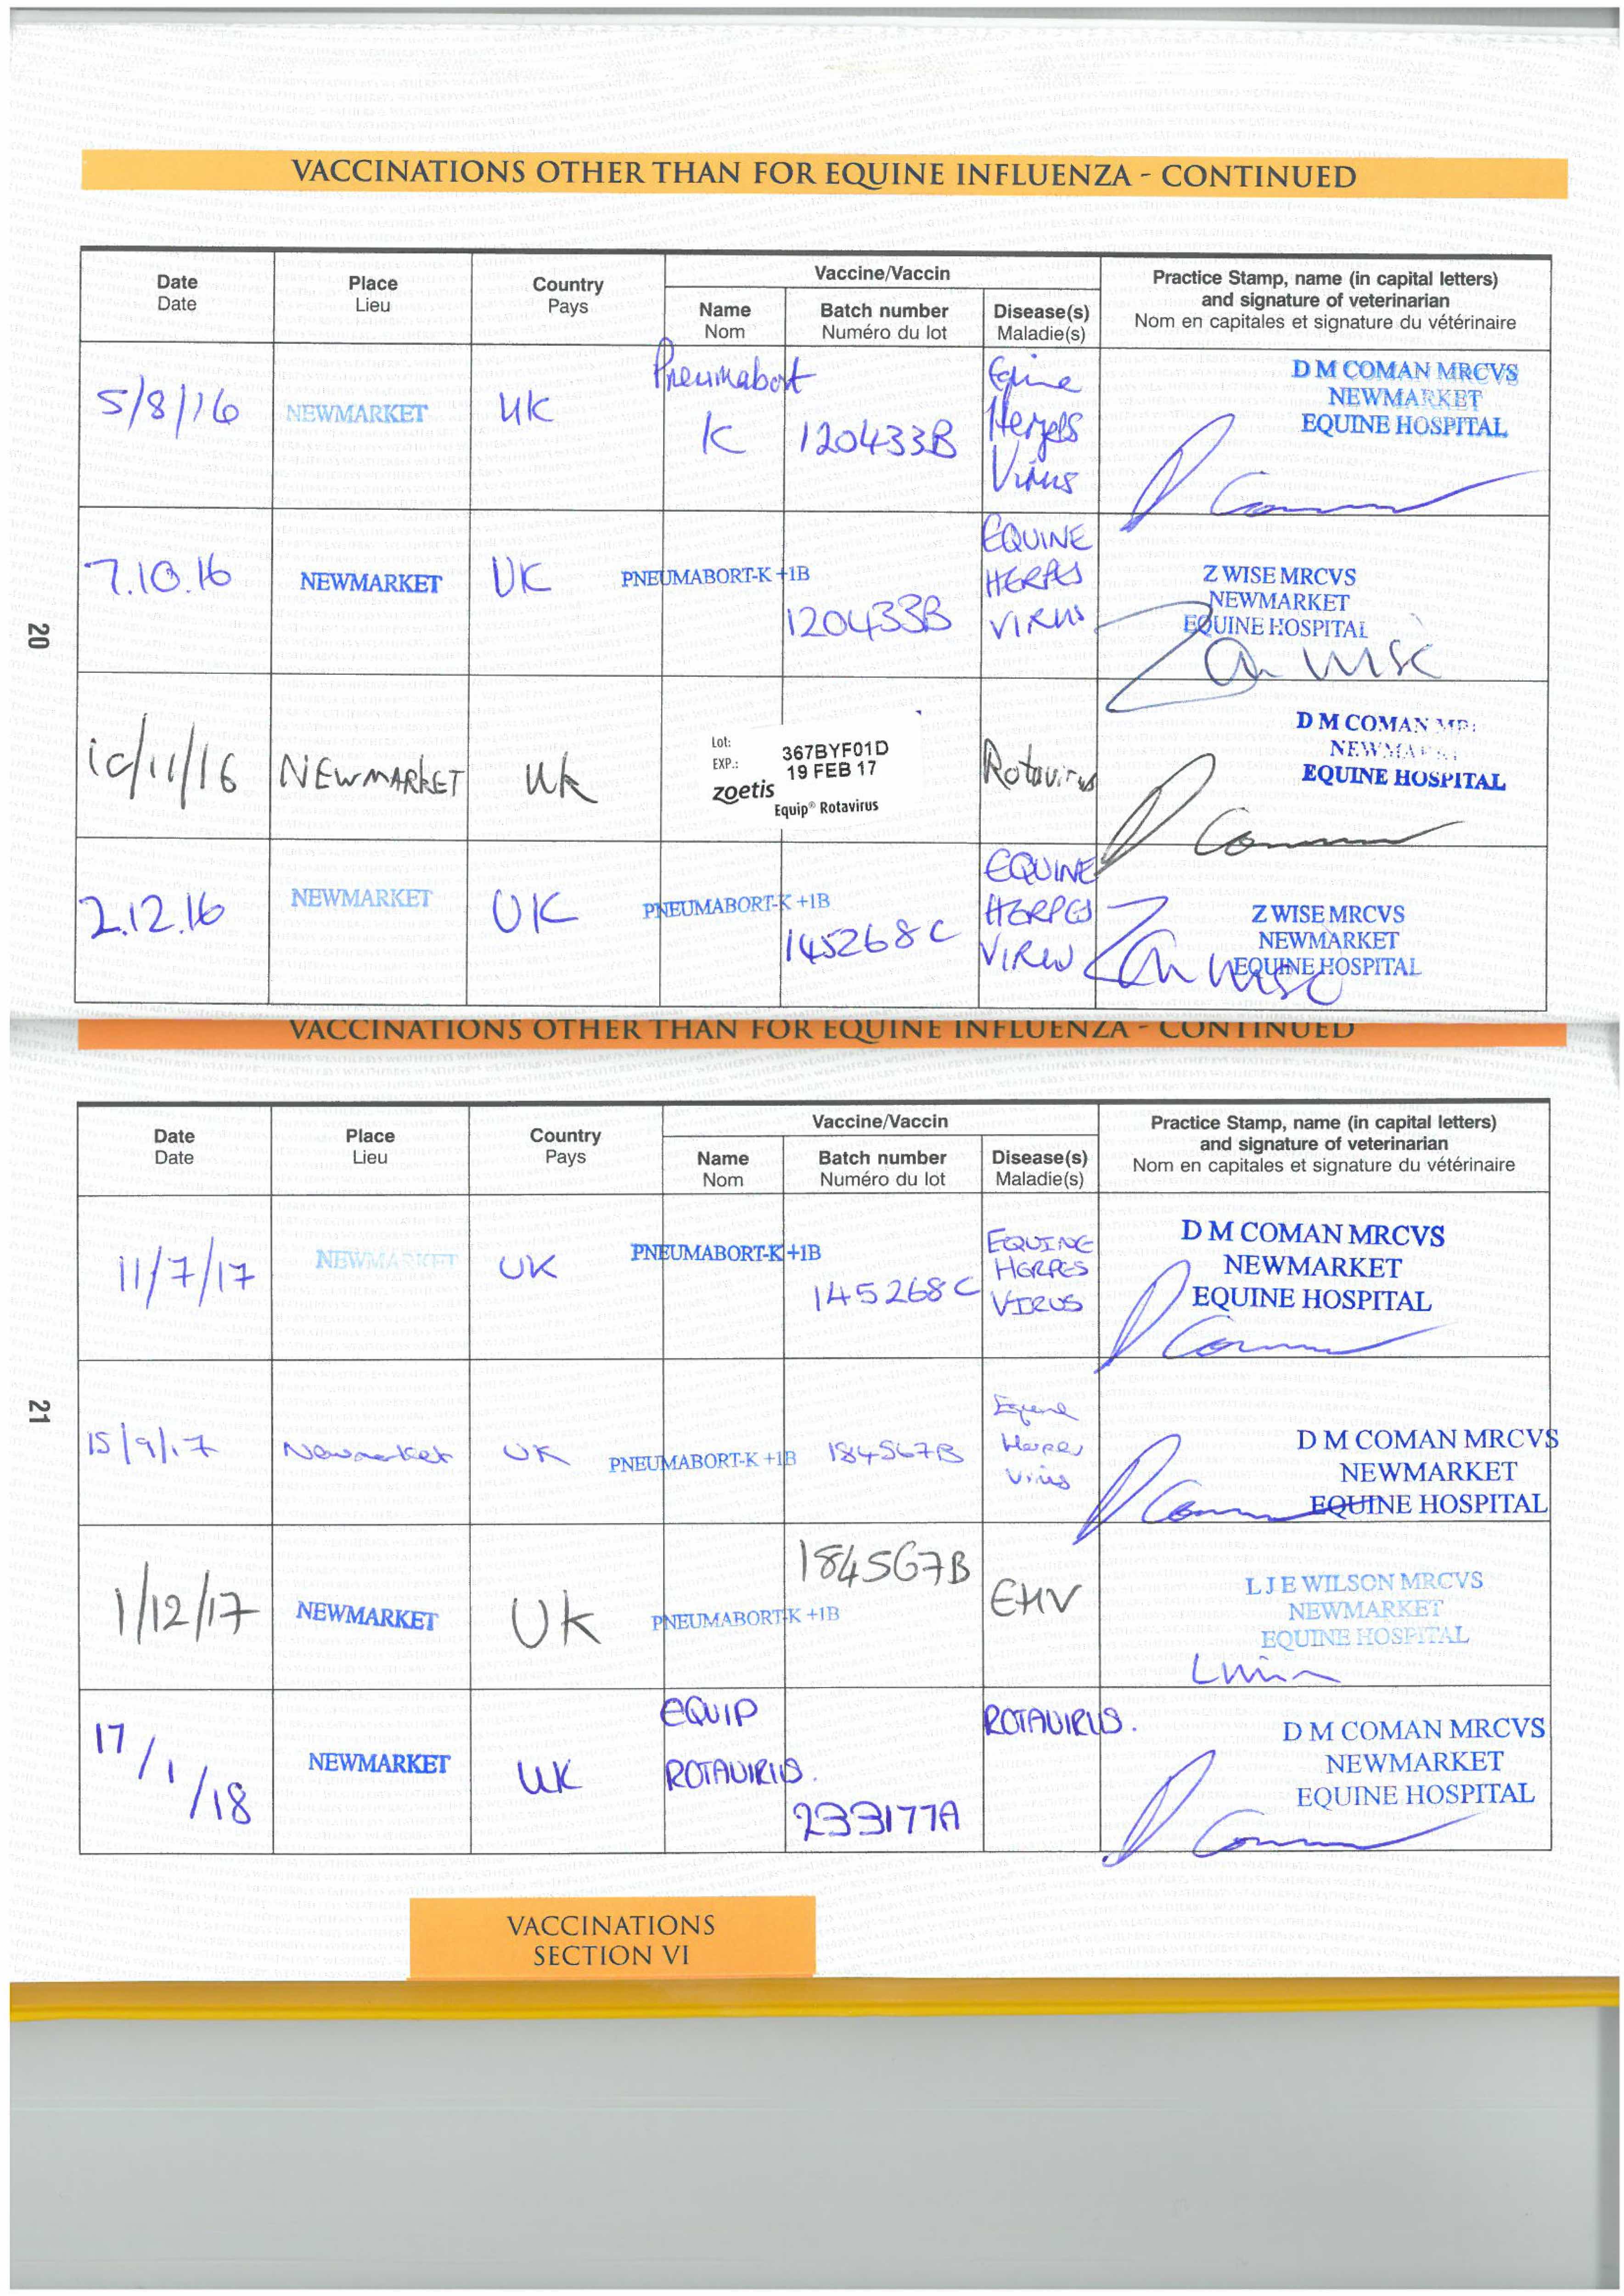 VACCINATIONS OTHER THAN FOR EQUINE INFLUENZA - CONTINUED
Date Place Country Vaccine/Vaccin Practice Stamp, name (in capital letters)
Date Lieu Pays and signature of veterinarian
Name Batch number Disease(s) Nom en capitales et signature du vétérinaire
Nom Numéro du lot Maladie(s)
5/8/16 NEWMARKET UK Pneumabort K 120433B Equine Herpes Virus
D M COMAN MRCVS
NEWMARKET
EQUINE HOSPITAL
7.10.16 NEWMARKET UK PNEUMABORT-K +1B 120433B EQUINE HERPES VIRUS
Z WISE MRCVS
NEWMARKET
EQUINE HOSPITAL
10/11/16 NEWMARKET UK
Lot: 367BYF01D
EXP.: 19 FEB 17
zoetis
Equip® Rotavirus
Rotavirus
D M COMAN
NEWMARKET
EQUINE HOSPITAL
2.12.16 NEWMARKET UK PNEUMABORT-K +1B 145268C EQUINE HERPES VIRUS
Z WISE MRCVS
NEWMARKET
EQUINE HOSPITAL
20
VACCINATIONS OTHER THAN FOR EQUINE INFLUENZA - CONTINUED
Date Place Country Vaccine/Vaccin Practice Stamp, name (in capital letters)
Date Lieu Pays and signature of veterinarian
Name Batch number Disease(s) Nom en capitales et signature du vétérinaire
Nom Numéro du lot Maladie(s)
11/7/17 NEWMARKET UK PNEUMABORT-K +1B 145268C EQUINE HERPES VIRUS
D M COMAN MRCVS
NEWMARKET
EQUINE HOSPITAL
15/9/17 Newmarket UK PNEUMABORT-K +1B 184567B Equine Herpes Virus
D M COMAN MRCVS
NEWMARKET
EQUINE HOSPITAL
1/12/17 NEWMARKET UK PNEUMABORT-K +1B 184567B EHV
L J E WILSON MRCVS
NEWMARKET
EQUINE HOSPITAL
17/1/18 NEWMARKET UK EQUIP ROTAVIRUS. 233177A ROTAVIRUS.
D M COMAN MRCVS
NEWMARKET
EQUINE HOSPITAL
21
VACCINATIONS
SECTION VI